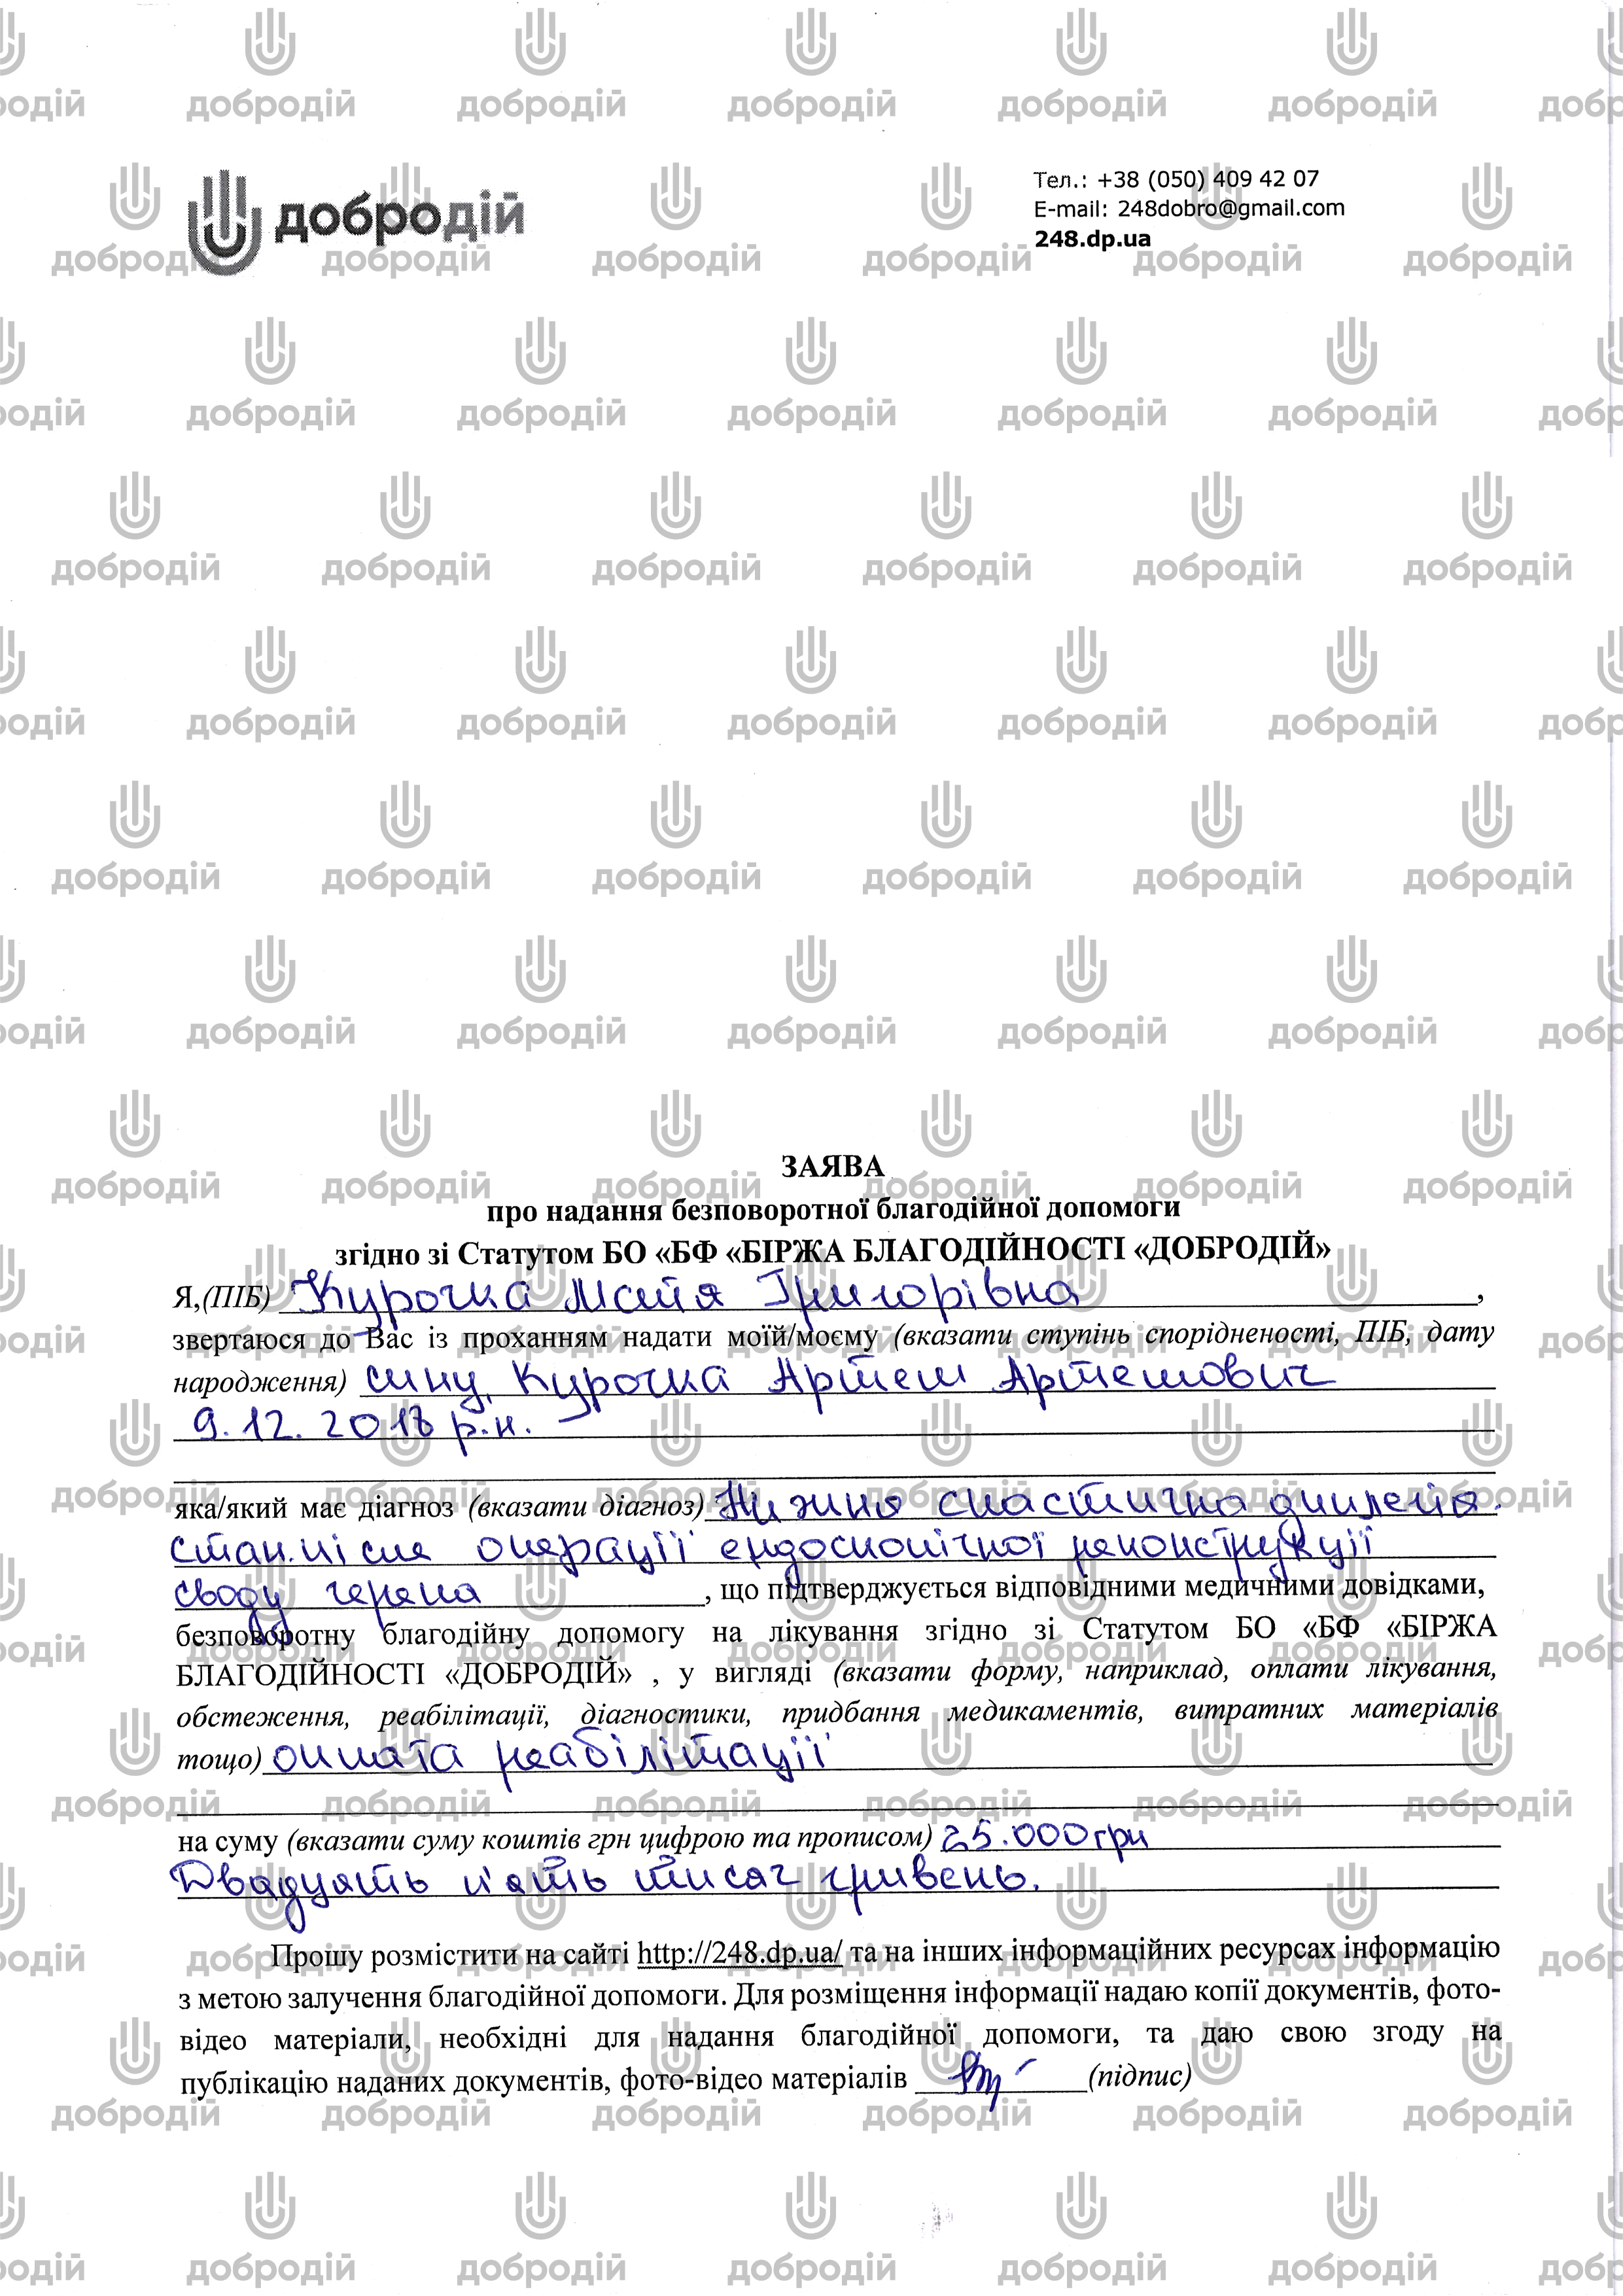 добродій
Тел.: +38 (050) 409 42 07
E-mail: 248dobro@gmail.com
248.dp.ua
ЗАЯВА
про надання безповоротної благодійної допомоги
згідно зі Статутом БО «БФ «БІРЖА БЛАГОДІЙНОСТІ «ДОБРОДІЙ»
Я,(ПІБ) Курочка Майя Григорівна,
звертаюся до Вас із проханням надати моїй/моєму (вказати ступінь спорідненості, ПІБ, дату
народження) сину, Курочка Артем Артемович
9.12. 2018 р.н.
яка/який має діагноз (вказати діагноз) Нижня спастична диплегія.
стан.після операції ендоскопічної реконструкції
своду черепа, що підтверджується відповідними медичними довідками,
безповоротну благодійну допомогу на лікування згідно зі Статутом БО «БФ «БІРЖА
БЛАГОДІЙНОСТІ «ДОБРОДІЙ» , у вигляді (вказати форму, наприклад, оплати лікування,
обстеження, реабілітації, діагностики, придбання медикаментів, витратних матеріалів
тощо) оплата реабілітації
на суму (вказати суму коштів грн цифрою та прописом) 25.000грн
Двадцять п'ять тисяч гривень.
Прошу розмістити на сайті http://248.dp.ua/ та на інших інформаційних ресурсах інформацію
з метою залучення благодійної допомоги. Для розміщення інформації надаю копії документів, фото-
відео матеріали, необхідні для надання благодійної допомоги, та даю свою згоду на
публікацію наданих документів, фото-відео матеріалів (підпис)